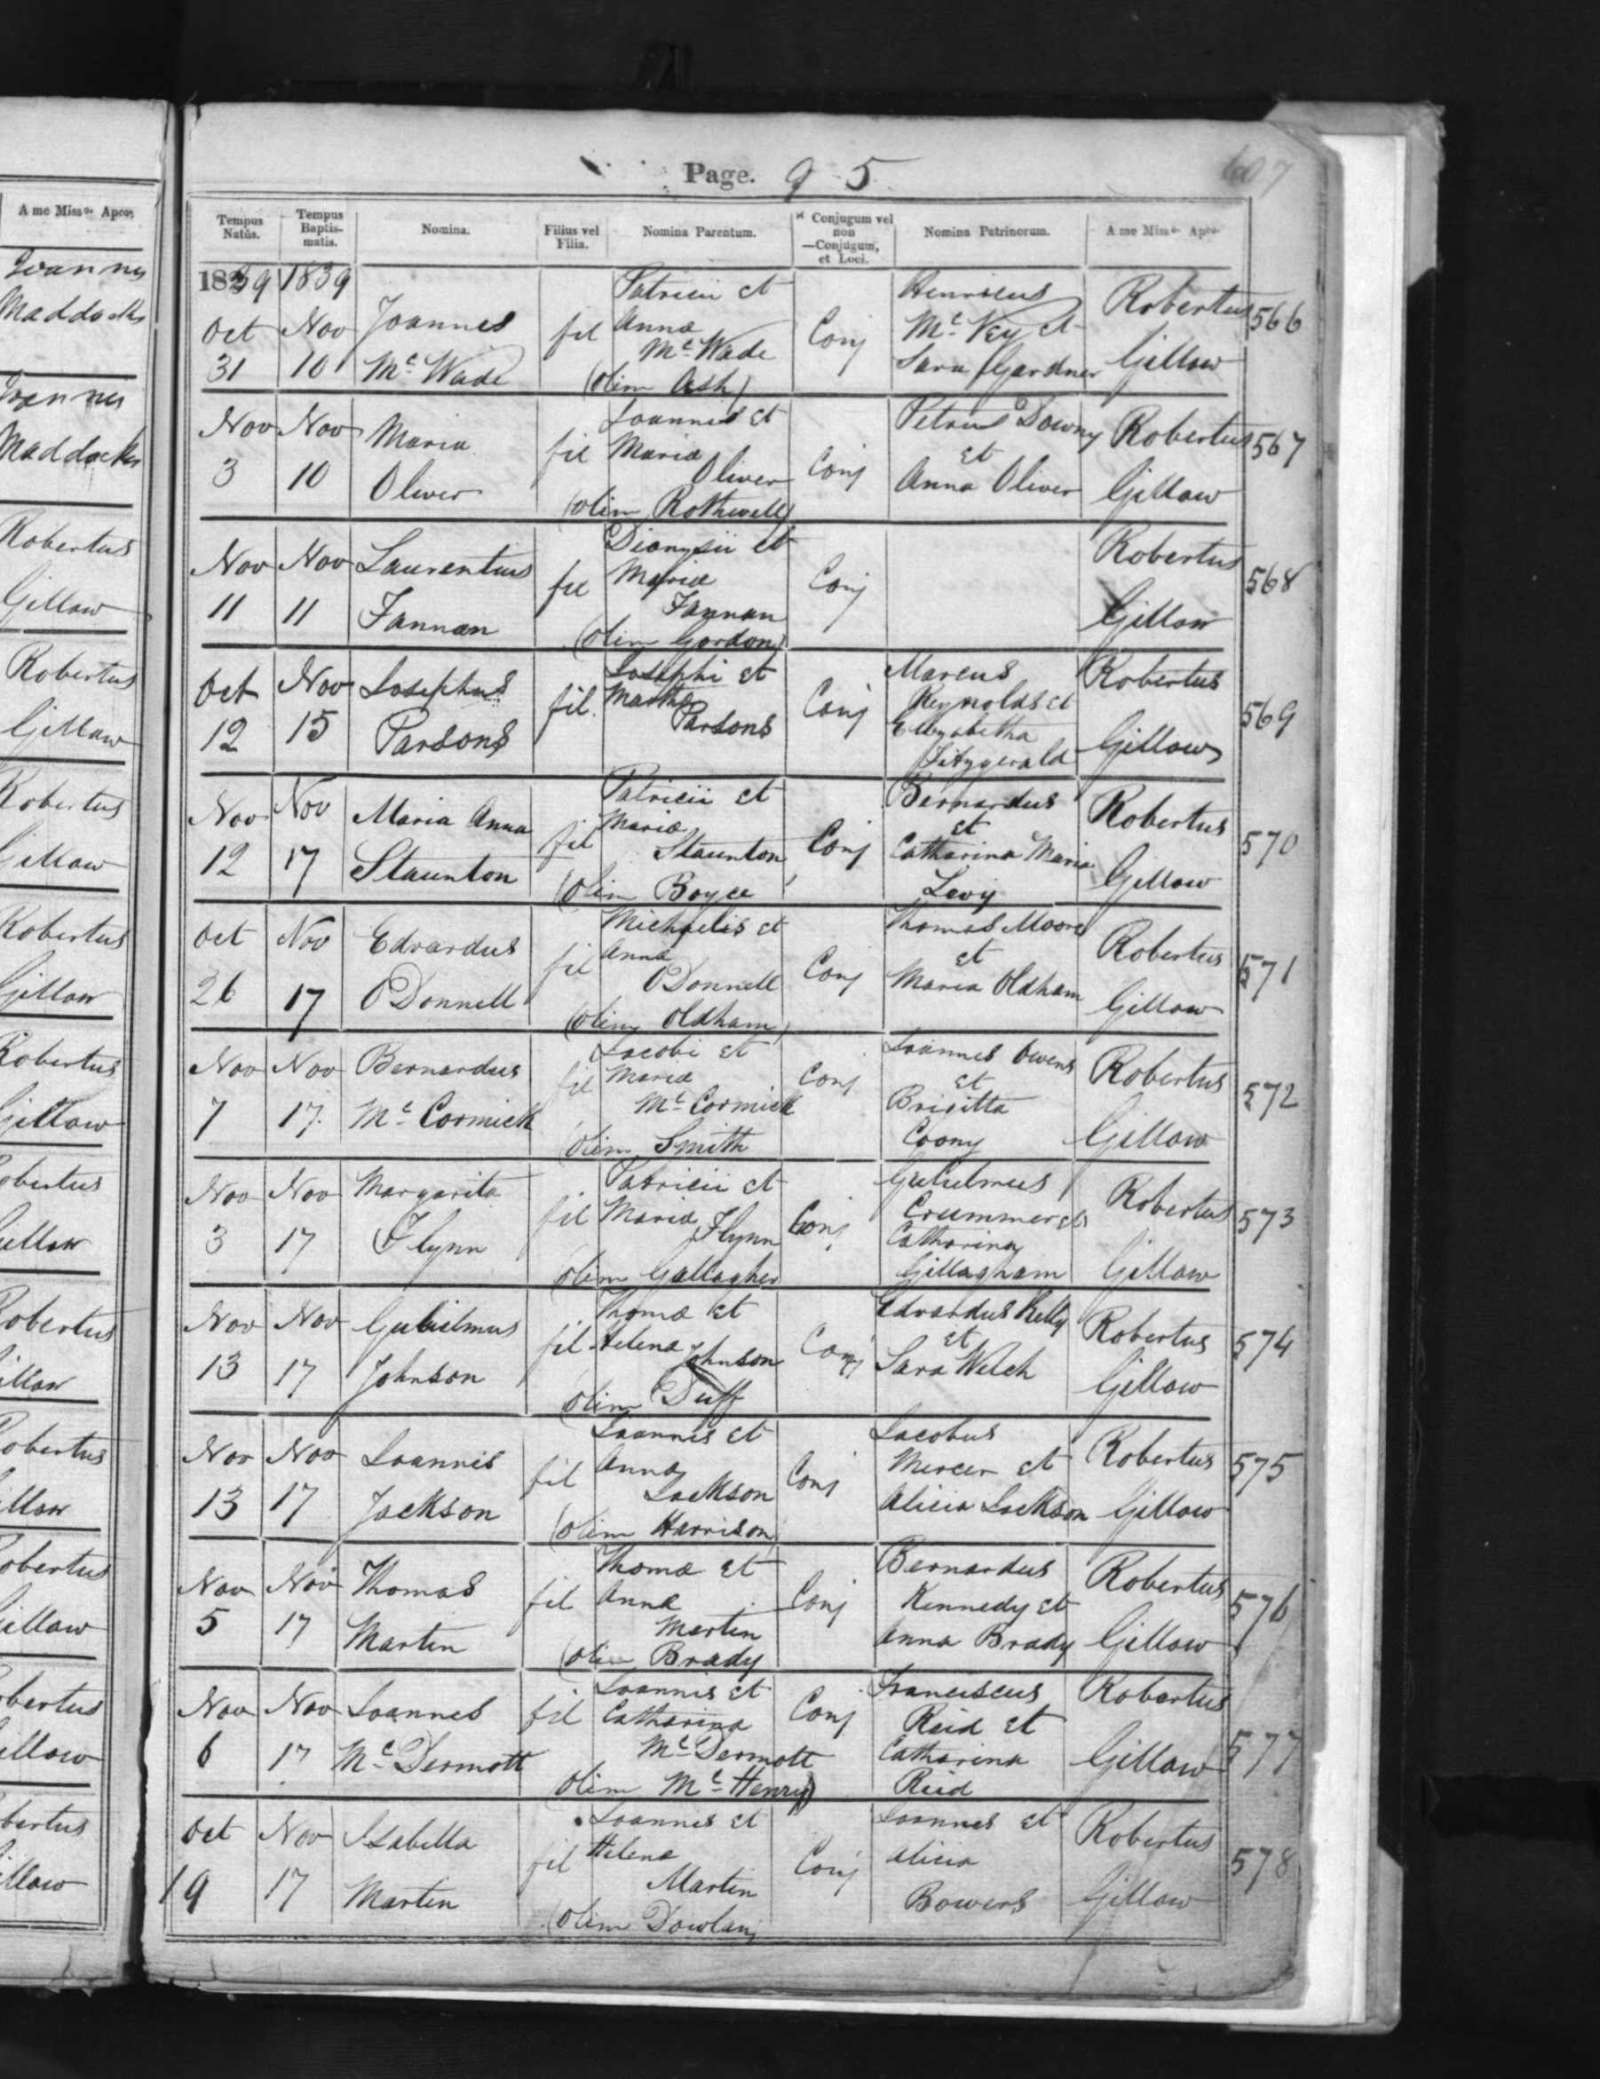 A me Miss. Apco.
Joannes
Maddocks
Joannes
Maddocks
Robertus
Gillow
Robertus
Gillow
Robertus
Gillow
Robertus
Gillow
Robertus
Gillow
Page. 95
607
Tempus Natûs. Tempus Baptismatis. Nomina. Filius vel Filia. Nomina Parentum. Conjugum vel non —Conjugum, et Loci. Nomina Patrinorum. A me Miss. Apco.
1839 1839 Patricii et Henricus Robertus 566
Oct Nov Joannes fil Anna Conj Mc Vey et
31 10 Mc Wade Mc Wade Sara Gardner Gillow
(olim Ash)
Nov Nov Maria fil Joannis et Conj Petrus Downy Robertus 567
3 10 Oliver Maria Oliver et Anna Oliver Gillow
(olim Rothwell)
Nov Nov Laurentius fil Dionysii et Conj Robertus 568
11 11 Fannan Maria Fannan Gillow
(olim Gordon)
Oct Nov Josephus fil. Josephi et Conj Marcus Robertus 569
12 15 Parsons Martha Parsons Reynolds et Elizabetha Fitzgerald Gillow
Nov Nov Maria Anna fil Patricii et Conj Bernardus Robertus 570
12 17 Staunton Maria Staunton et Catharina Maria Levy Gillow
(olim Boyce
Oct Nov Edvardus fil Michaelis et Conj Thomas Moore Robertus 571
26 17 O'Donnell Anna O'Donnell et Maria Oldham Gillow
(olim Oldham)
Nov Nov Bernardus fil Jacobi et Conj Joannes Owens Robertus 572
7 17. Mc Cormick Maria Mc Cormick et Brigitta Coony Gillow
olim Smith
Nov Nov Margarita fil Patricii et Conj Gulielmus Robertus 573
3 17 Flynn Maria Flynn Crummer et Catharina Gillagham Gillow
olim Gallagher
Nov Nov Gulielmus fil Thoma et Conj Edvardus Kelly Robertus 574
13 17 Johnson Helena Johnson et Sara Welch Gillow
(olim Duff
Nov Nov Joannis fil Joannis et Conj Jacobus Robertus 575
13 17 Jackson Anna Jackson Mercer et Alicia Jackson Gillow
(olim Harrison)
Nov Nov Thomas fil Thoma et Conj Bernardus Robertus 576
5 17 Martin Anna Martin Kennedy et Anna Brady Gillow
(olim Brady
Nov Nov Joannes fil Joannis et Conj Franciscus Robertus 577
6 17 Mc Dermott Catharina Mc Dermott Reid et Catharina Reid Gillow
olim Mc Henry)
Oct Nov Isabella fil Joannis et Conj Joannes et Robertus 578
19 17 Martin Helena Martin Alicia Bowers Gillow
(olim Dowlan